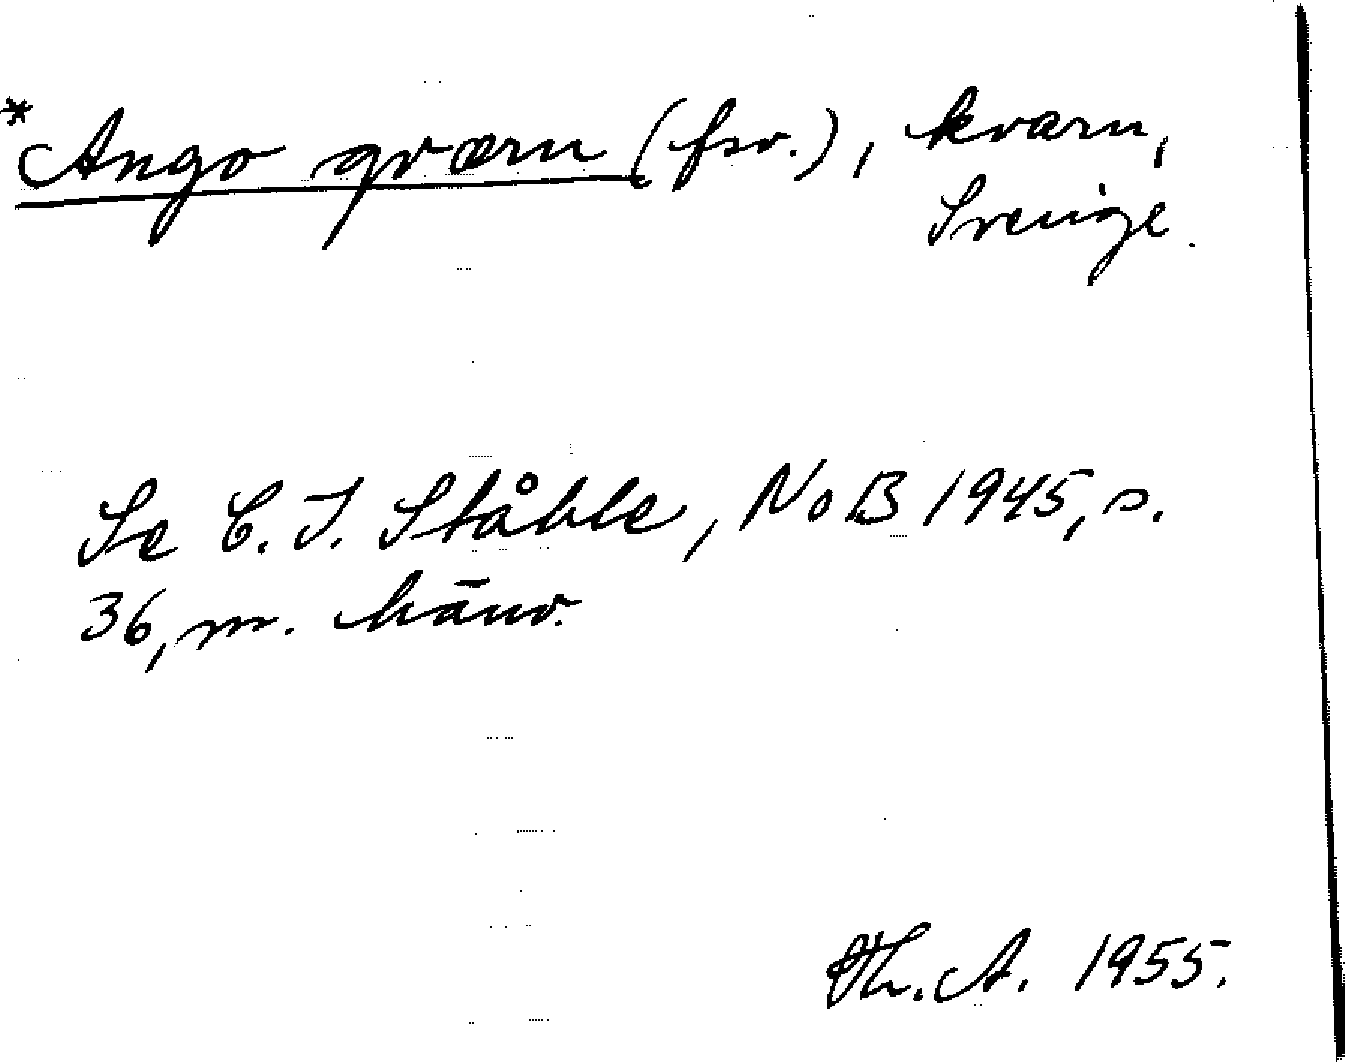 *Ango qværn (fsv.), kvarn,
Sverige.
Se C. I. Ståhle, NoB 1945, s.
36, m. hänv.
Th. A. 1955.